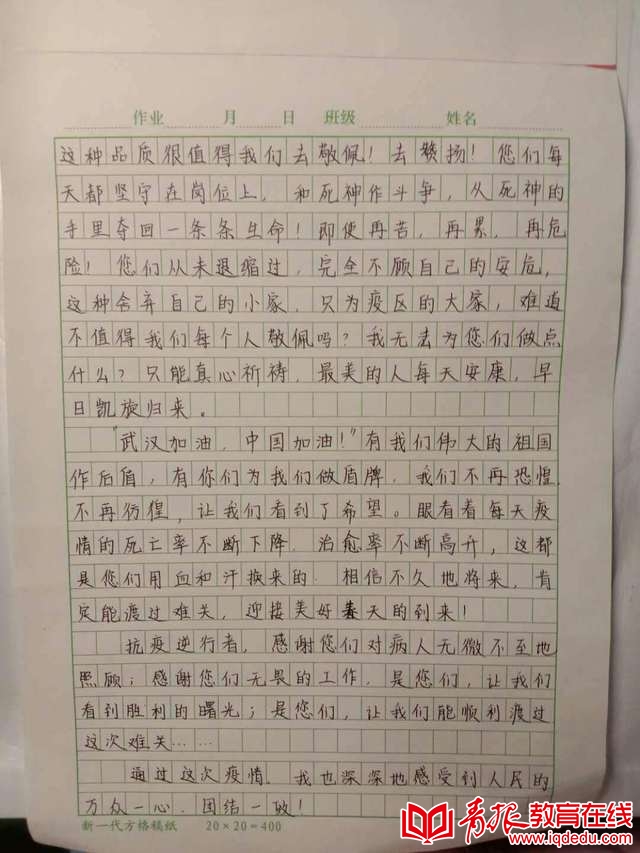 作业 月 日 班级 姓名
这种品质很值得我们去敬佩！去赞扬！您们每
天都坚守在岗位上，和死神作斗争，从死神的
手里夺回一条条生命！即使再苦，再累，再危
险！您们从未退缩过，完全不顾自己的安危，
这种舍弃自己的小家，只为疫区的大家，难道
不值得我们每个人敬佩吗？我无法为您们做点
什么？只能真心祈祷，最美的人每天安康，早
日凯旋归来。
“武汉加油，中国加油！”有我们伟大的祖国
作后盾，有你们为我们做盾牌，我们不再恐惶
不再彷徨，让我们看到了希望。眼看着每天疫
情的死亡率不断下降，治愈率不断高升，这都
是您们用血和汗换来的．相信不久地将来，肯
定能渡过难关，迎接美好春天的到来！
抗疫逆行者，感谢您们对病人无微不至地
照顾；感谢您们无畏的工作，是您们，让我们
看到胜利的曙光；是您们，让我们能顺利渡过
这次难关……
通过这次疫情．我也深深地感受到人民的
万众一心．团结一致！
新一代方格稿纸 20×20=400
青报教育在线
www.iqdedu.com